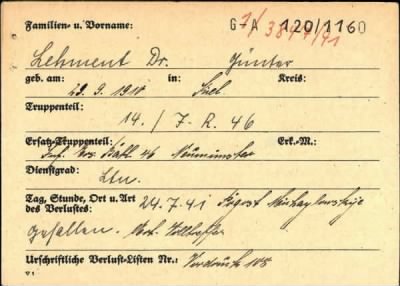 Familien- u. Vorname: G-A 120/1160
Lehment Dr. Günter
geb. am: in: Kreis:
29. 9. 1910 Kiel
Truppenteil:
14. / I. R. 46
Ersatz-Truppenteil: Erk.-M.:
Inf. Ers. Batl. 46 Neumünster
Dienstgrad:
Ltn.
Tag, Stunde, Ort u. Art
des Verlustes: 24.7.41
gefallen.
Urschriftliche Verlust-Listen Nr.: Vordruck
V 1